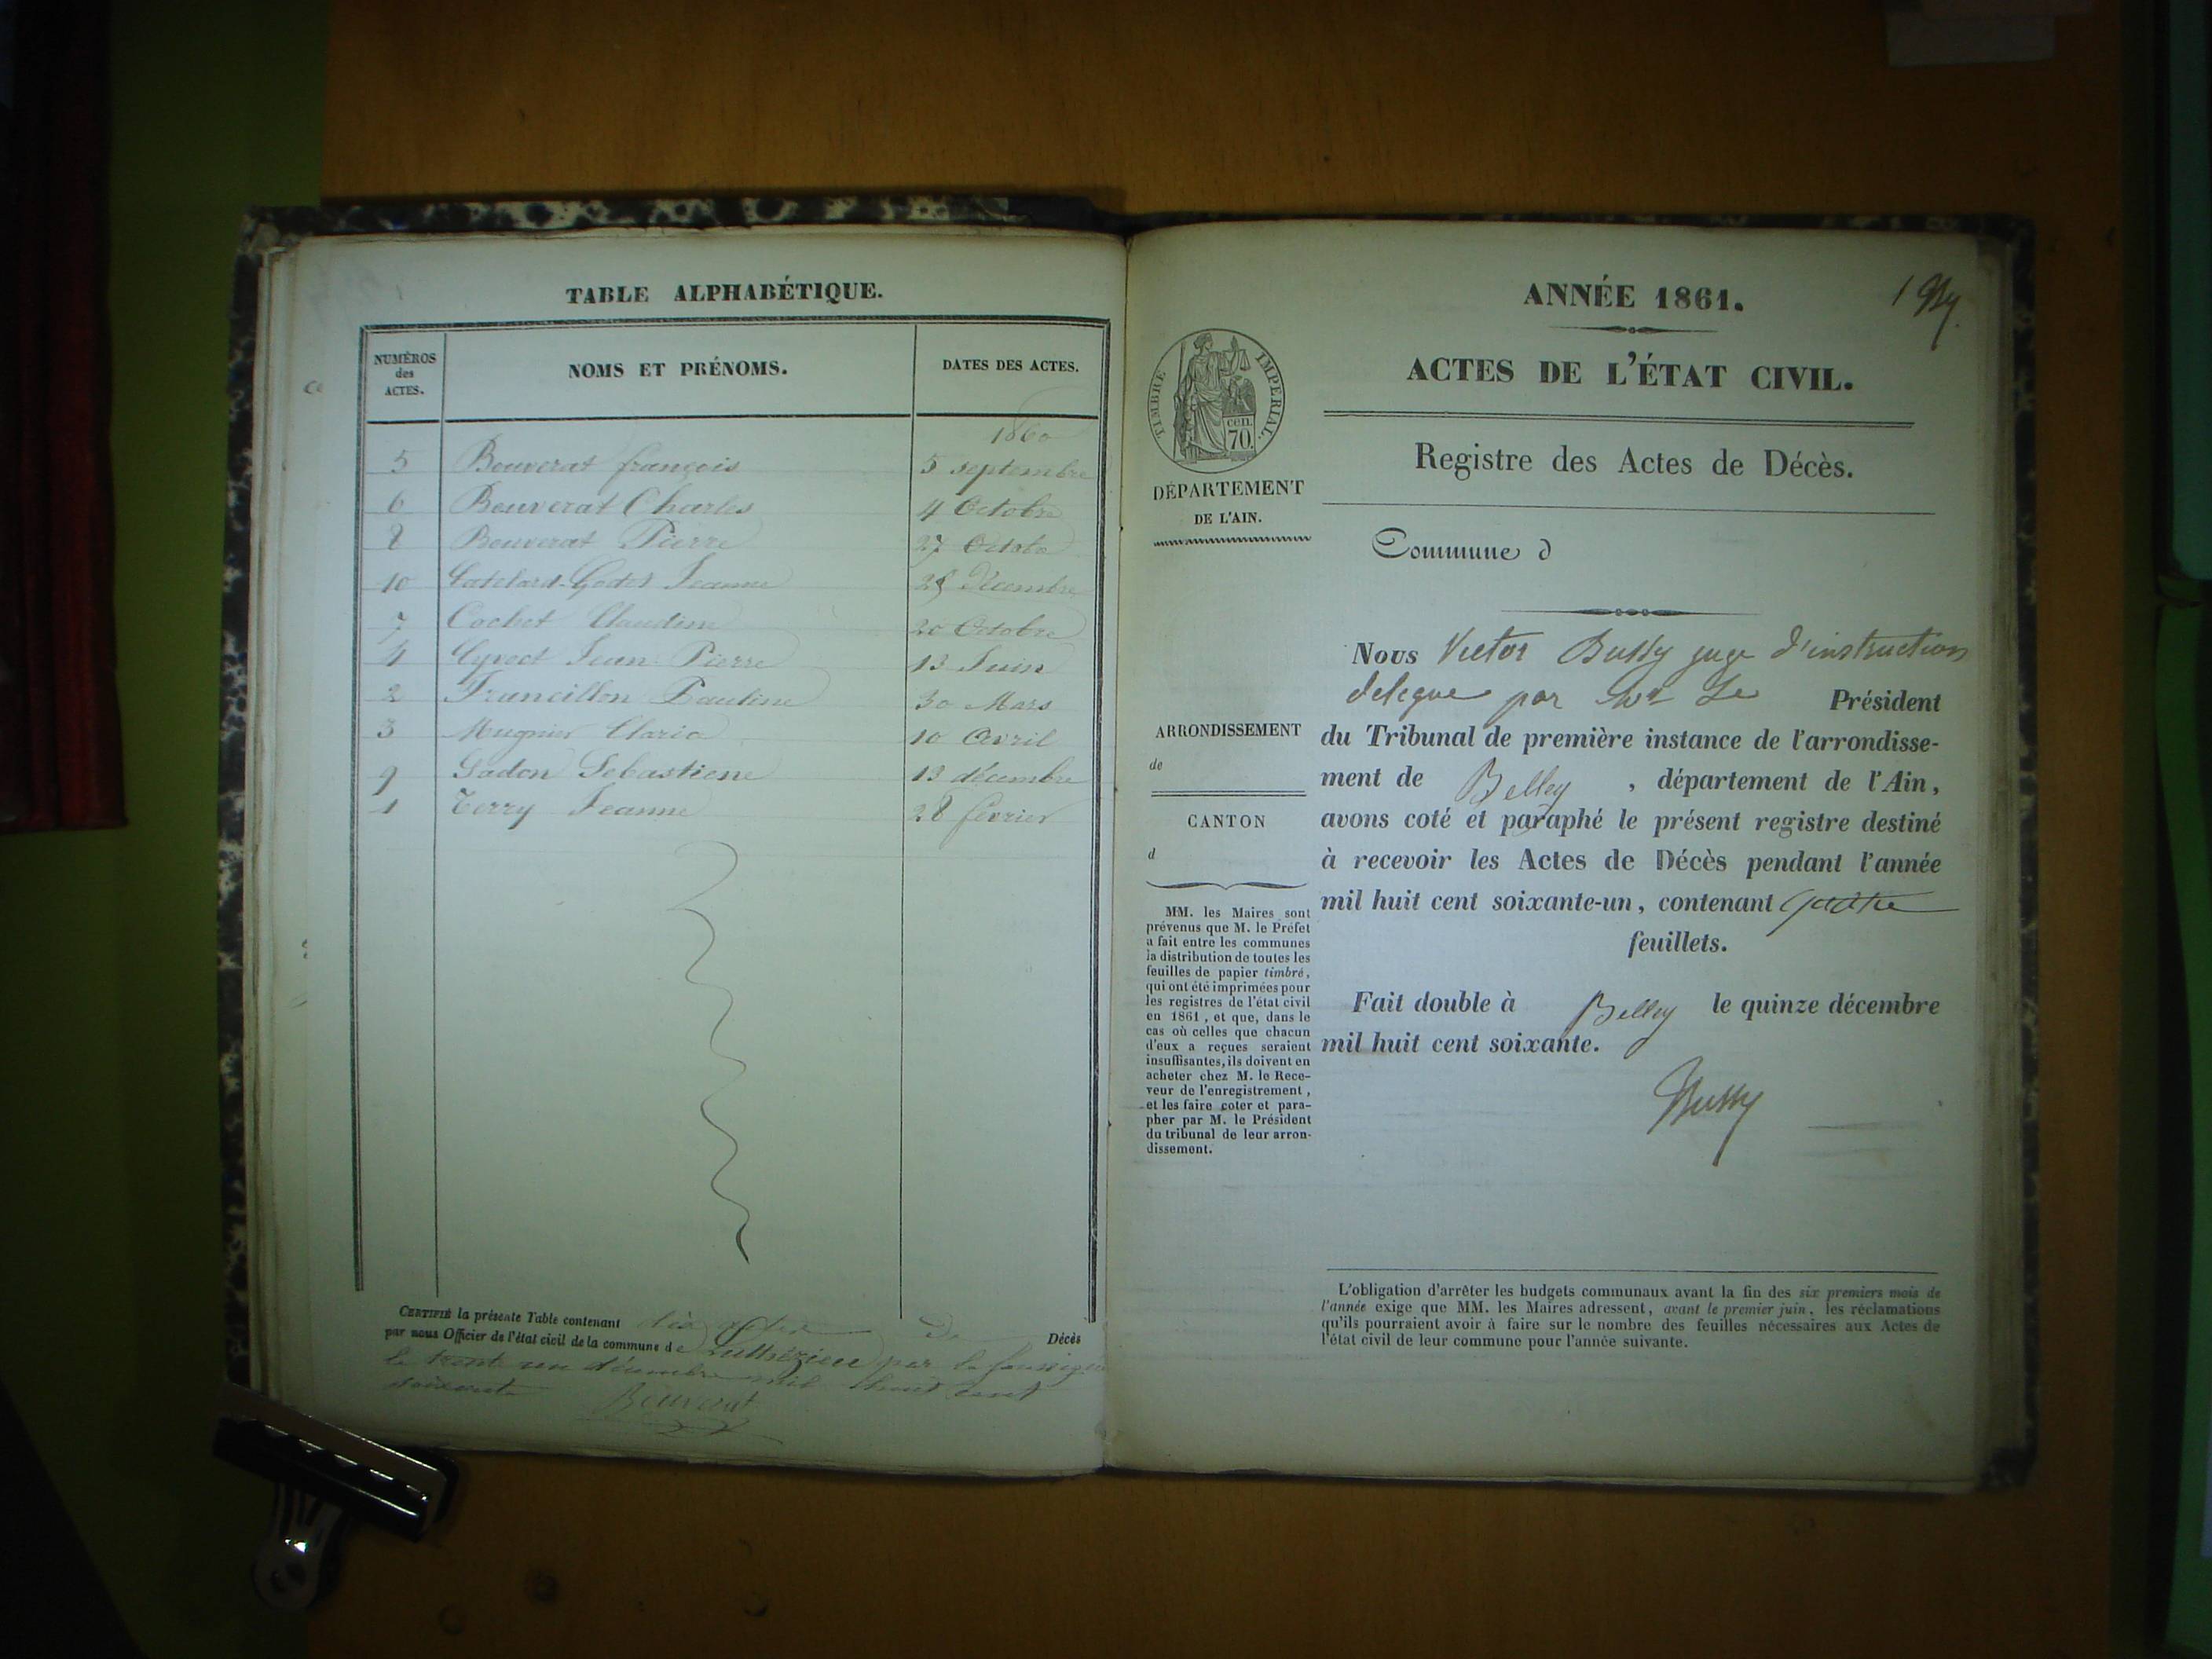 TABLE ALPHABÉTIQUE.
NUMÉROS des ACTES.
NOMS ET PRÉNOMS.
DATES DES ACTES.
1860
5 Bouverat françois 5 septembre
6 Bouverat Charles 4 Octobre
8 Bouverat Pierre 27 Octobre
10 Jeanne décembre
7 Cochet Claudine 20 Octobre
4 Cyvoct Jean Pierre 13 Juin
2 Francillon Pauline 30 Mars
3 Mugnier Claria 10 avril
9 Sadon Sebastiene 13 décembre
1 Terry Jeanne 28 février
CERTIFIÉ la présente Table contenant dix actes De Décès
par nous Officier de l'état civil de la commune de Luthézieu par le
le trente un décembre mil huit cent
soixante
Bouverat
1 By
ANNÉE 1861.
ACTES DE L'ÉTAT CIVIL.
Registre des Actes de Décès.
Commune d
TIMBRE IMPERIAL.
CEN. 70
DÉPARTEMENT
DE L'AIN.
ARRONDISSEMENT
de
CANTON
d
MM. les Maires sont
prévenus que M. le Préfet
a fait entre les communes
la distribution de toutes les
feuilles de papier timbré,
qui ont été imprimées pour
les registres de l'état civil
en 1861, et que, dans le
cas où celles que chacun
d'eux a reçues seraient
insuffisantes, ils doivent en
acheter chez M. le Rece-
veur de l'enregistrement,
et les faire coter et para-
pher par M. le Président
du tribunal de leur arron-
dissement.
Nous Victor Bussy juge d'instruction
delegue par Mr Le Président
du Tribunal de première instance de l'arrondisse-
ment de Belley , département de l'Ain,
avons coté et paraphé le présent registre destiné
à recevoir les Actes de Décès pendant l'année
mil huit cent soixante-un, contenant quatre
feuillets.
Fait double à Belley le quinze décembre
mil huit cent soixante.
Bussy
L'obligation d'arrêter les budgets communaux avant la fin des six premiers mois de
l'année exige que MM. les Maires adressent, avant le premier juin, les réclamations
qu'ils pourraient avoir à faire sur le nombre des feuilles nécessaires aux Actes de
l'état civil de leur commune pour l'année suivante.